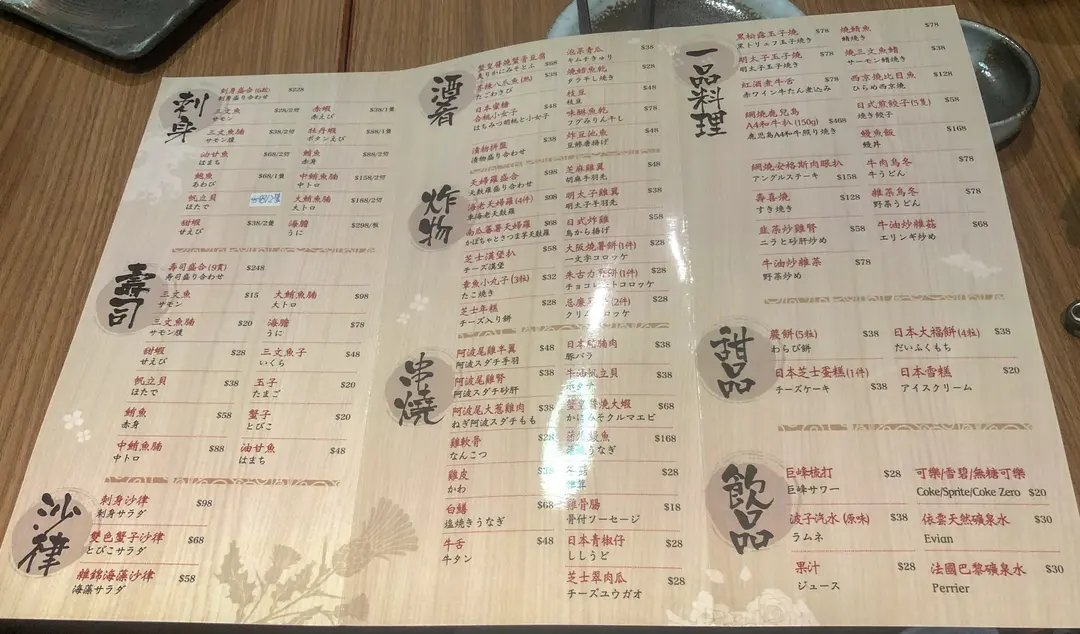 刺身
刺身盛合(6款) $228
刺身盛り合わせ
三文魚 $28/2切
サモン
三文魚腩 $38/2切
サモン腹
油甘魚 $68/2切
はまち
鮑魚 $68/1隻
あわび
帆立貝
ほたて
甜蝦 $38/2隻
甘えび
赤蝦 $38/1隻
赤えび
牡丹蝦 $88/1隻
ボタンえび
鮪魚 $88/2切
赤身
中鮪魚腩 $158/2切
中トロ
大鮪魚腩 $188/2切
大トロ
海膽 $298/板
うに
壽司
寿司盛合(9貫) $248
寿司盛り合わせ
三文魚 $15
サモン
三文魚腩 $20
サモン腹
甜蝦 $28
甘えび
帆立貝 $38
ほたて
鮪魚 $58
赤身
中鮪魚腩 $88
中トロ
大鮪魚腩 $98
大トロ
海膽 $78
うに
三文魚子 $48
いくら
玉子 $20
たまご
蟹子 $20
とびこ
油甘魚 $48
はまち
沙律
刺身沙律 $98
刺身サラダ
雙色蟹子沙律 $68
とびこサラダ
雜錦海藻沙律 $58
海藻サラダ
酒肴
蟹皇醬燒蟹膏豆腐 $68
炙りかにみそとふ
芥辣八爪魚(熱) $38
たこわさび
日本蜜糖
合桃小女子 $48
はちみつ胡桃と小女子
漬物拼盤 $48
漬物盛り合わせ
泡菜青瓜 $38
キムチきゅり
燒鱈魚乾 $28
タラ干し焼き
枝豆 $48
枝豆
味醂魚乾 $78
フグみりん干し
炸豆泡魚 $48
豆鯵唐揚げ
炸物
天婦羅盛合 $98
天麩羅盛り合わせ
海老天婦羅(4件) $98
車海老天麩羅
南瓜蕃薯天婦羅 $68
かぼちゃとさつま芋天麩羅
芝士漢堡扒 $58
チーズ漢堡
章魚小丸子(3粒) $32
たこ焼き
芝士年糕 $28
チーズ入り餅
芝麻雞翼 $48
胡麻手羽先
明太子雞翼 $38
明太子手羽先
日式炸雞 $58
鳥から揚げ
大阪燒薯餅(1件) $28
一文字コロッケ
朱古力薯餅(1件) $28
チョコレートコロッケ
忌廉薯餅(2件) $28
クリームコロッケ
串燒
阿波尾雞半翼 $48
阿波スダチ手羽
阿波尾雞腎 $38
阿波スダチ砂肝
阿波尾大葱雞肉 $38
ねぎ阿波スダチもも
雞軟骨 $28
なんこつ
雞皮 $38
かわ
白鱔 $68
塩焼きうなぎ
牛舌 $48
牛タン
日本豬腩肉 $38
豚バラ
牛油帆立貝 $38
ホタテ
蟹皇醬燒大蝦 $68
かにみそクルマエビ
$168
うなぎ
冬菇 $28
椎茸
雞骨腸 $18
骨付ソーセージ
日本青椒仔 $28
ししうど
芝士翠肉瓜 $28
チーズユウガオ
一品料理
黑松露玉子燒 $78
黒トリュフ玉子焼き
明太子玉子燒 $78
明太子玉子焼き
紅酒煮牛舌 $78
赤ワイン牛たん煮込み
網燒鹿兒島
A4和牛扒(150g) $468
鹿児島A4和牛照り焼き
網燒安格斯肉眼扒 $158
アングルステーキ
壽喜燒 $128
すき焼き
韭菜炒雞腎 $58
ニラと砂肝炒め
牛油炒雜菜 $78
野菜炒め
燒鯖魚 $78
鯖焼き
燒三文魚鰭 $38
サーモン鰭焼き
西京燒比目魚 $128
ひらめ西京焼
日式煎餃子(5隻) $58
焼き餃子
鰻魚飯 $168
鰻丼
牛肉烏冬 $78
牛うどん
雜菜烏冬 $78
野菜うどん
牛油炒雜菇 $68
エリンギ炒め
甜品
蕨餅(5粒) $38
わらび餅
日本芝士蛋糕(1件) $38
チーズケーキ
日本大福餅(4粒) $38
だいふくもち
日本雪糕 $20
アイスクリーム
飲品
巨峰梳打 $28
巨峰サワー
波子汽水(原味) $38
ラムネ
果汁 $28
ジュース
可樂/雪碧/無糖可樂
Coke/Sprite/Coke Zero $20
依雲天然礦泉水 $30
Evian
法國巴黎礦泉水 $30
Perrier